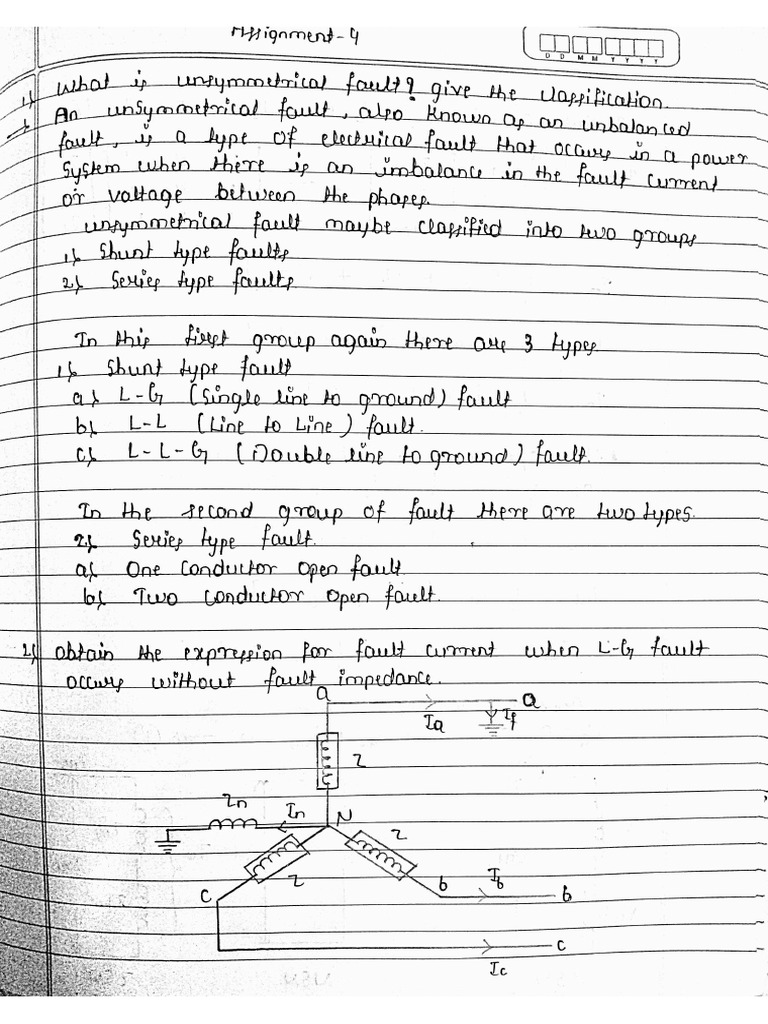 Assignment-4
D D M M Y Y Y Y
1) What is unsymmetrical fault? give the classification.
→ An unsymmetrical fault, also known as an unbalanced
fault, is a type of electrical fault that occurs in a power
system when there is an imbalance in the fault current
or voltage between the phases.
unsymmetrical fault maybe classified into two groups
1) Shunt type faults
2) Series type faults
In this first group again there are 3 types.
1) Shunt type fault
a) L-G (Single line to ground) fault
b) L-L (Line to Line) fault.
c) L-L-G (Double line to ground) fault.
In the second group of fault there are two types.
2) Series type fault.
a) One conductor open fault
b) Two conductor open fault.
2) obtain the expression for fault current when L-G fault
occurs without fault impedance.
a
a
Ia
If
Z
Zn
In
N
Z
Z
C
b
Ib
b
c
Ic